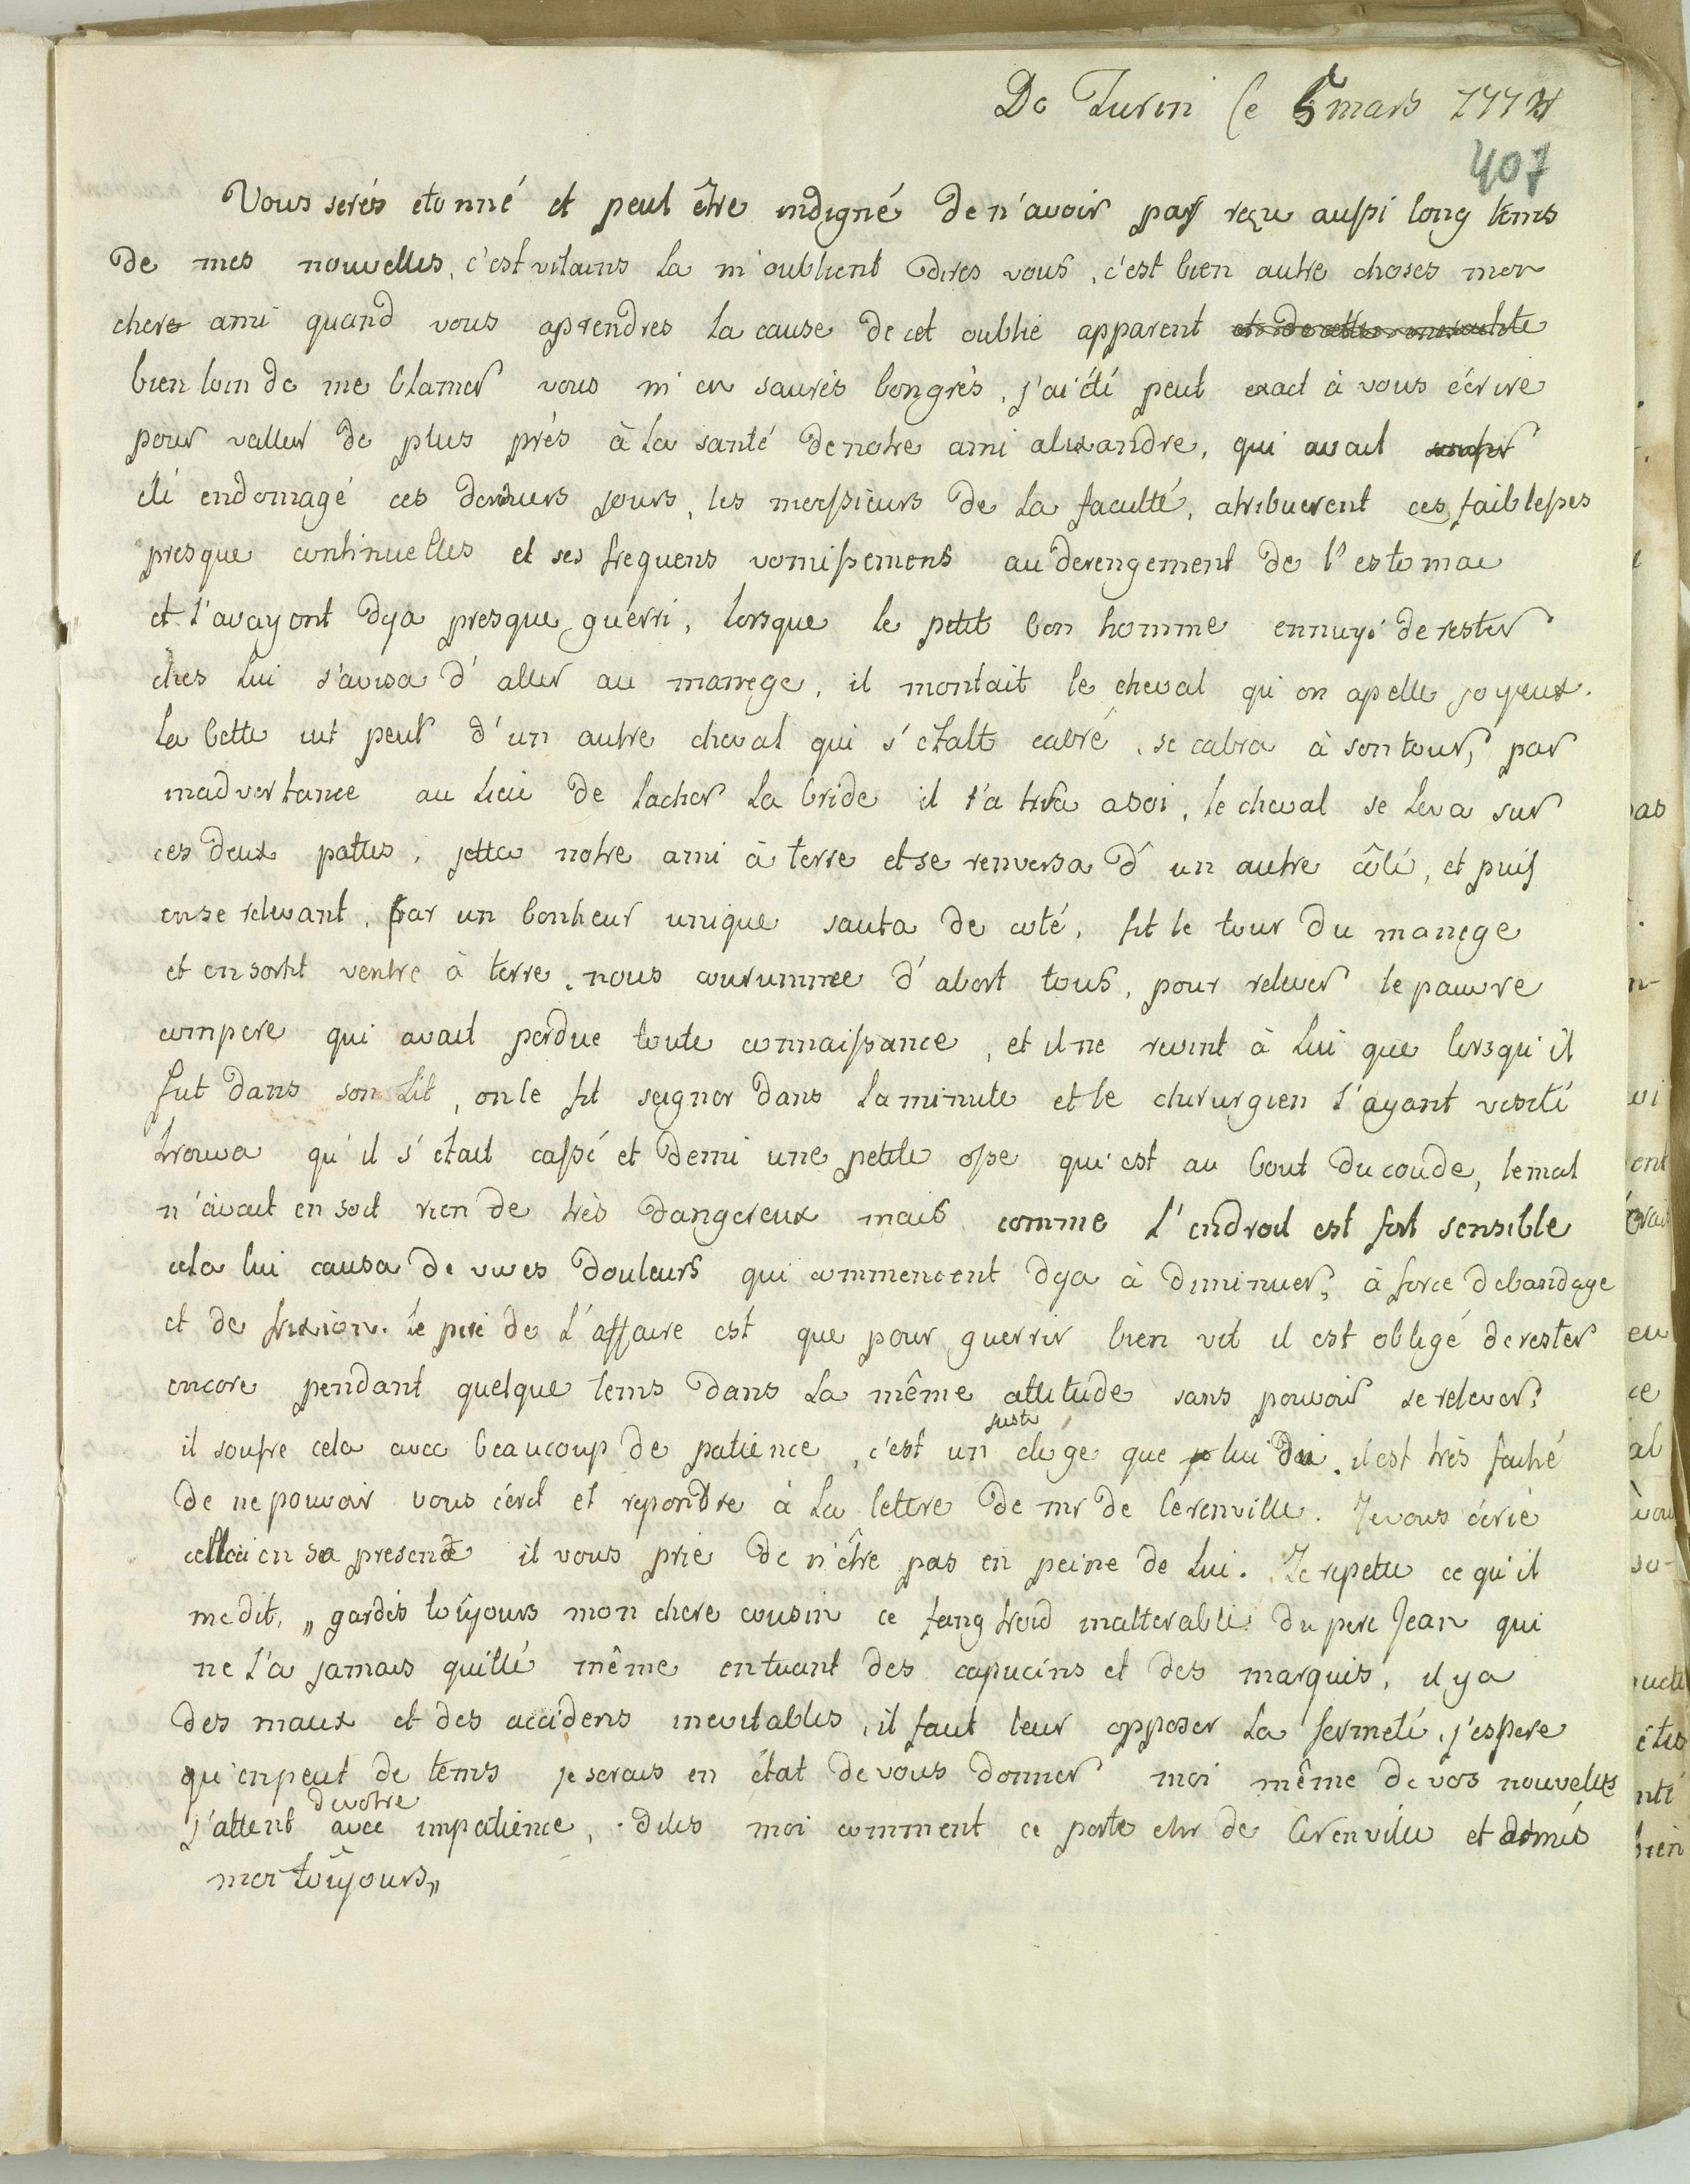 De Turin le 5 mars 177
407
Vous serés etonné et peut être indigné de n'avoir pas reçu aussi long tems
de mes nouvelles, c'est vilains la m'oublient dires vous, c'est bien autre choses mon
chere ami quand vous aprendres la cause de cet oublie apparent
bien loin de me blamer vous m'en saurés bongrés, j'ai été peut exact à vous écrire
pour veller de plus près à la santé de notre ami alexandre, qui avait
été endomagé ces derniers jours, les messieurs de la faculté, atribuerent ces faiblesses
presque continuelles et ses frequens vomissemens au derengement de l'estomac
et l'avayont dja presque guérri, lorsque le petit bon homme ennuyé de rester
ches lui s'avisa d'aller au manege, il montait le cheval qu'on apelle joyeux.
la bette eut peur d'un autre cheval qui s'étalt cabré, se cabra à son tour, par
inadvertance au lieu de lacher la bride il l'a tira asoi, le cheval se leva sur
ces deux pattes, jetta notre ami à terre et se renversa d'un autre côté, et puis
en se relevant, par un bonheur unique sauta de coté, fit le tour du manege
et en sortit ventre à terre. nous courummee d'abort tous, pour relever le pauvre
compere qui avait perdue toute connaissance, et il ne revint à lui que lorsqu'il
fut dans son lit, on le fit seigner dans la minute et le chirurgien l'ayant visité
trouva qu'il s'était cassé et demi une petite osse qui est au bout du coude, le mal
n'avait en soit rien de très dangereux mais comme l'endroit est fort sensible
cela lui causa de vives douleurs qui commencent dja à diminuer, à force de bandage
et de frixion. le pire de l'affaire est que pour guerrir bien vit il est obligé de rester
encore pendant quelque tems dans la même attitude sans pouvoir se relever,
il soufre cela avec beaucoup de patience, c'est un juste eloge que je lui dois. il est très faché
de ne pouvoir vous écrit et repondre à la lettre de mr de Cerenville. Je vous écrie
celleci en sa presence il vous prie de n'être pas en peine de lui. Je repette ce qu'il
me dit, „ gardés toûjours mon chere cousin ce sang froid inalterable du pere Jean qui
ne l'a jamais quitté même en tuant des capucins et des marquis, il y a
des maux et des accidens inevitables, il faut leur opposer la fermeté, j'espere
qu'en peut de tems je serais en état de vous donner moi même de vos nouvelles
j'attent de votre avec impatience, dites moi comment ce porte mr de Cerenville et aimés
moi toûjours „